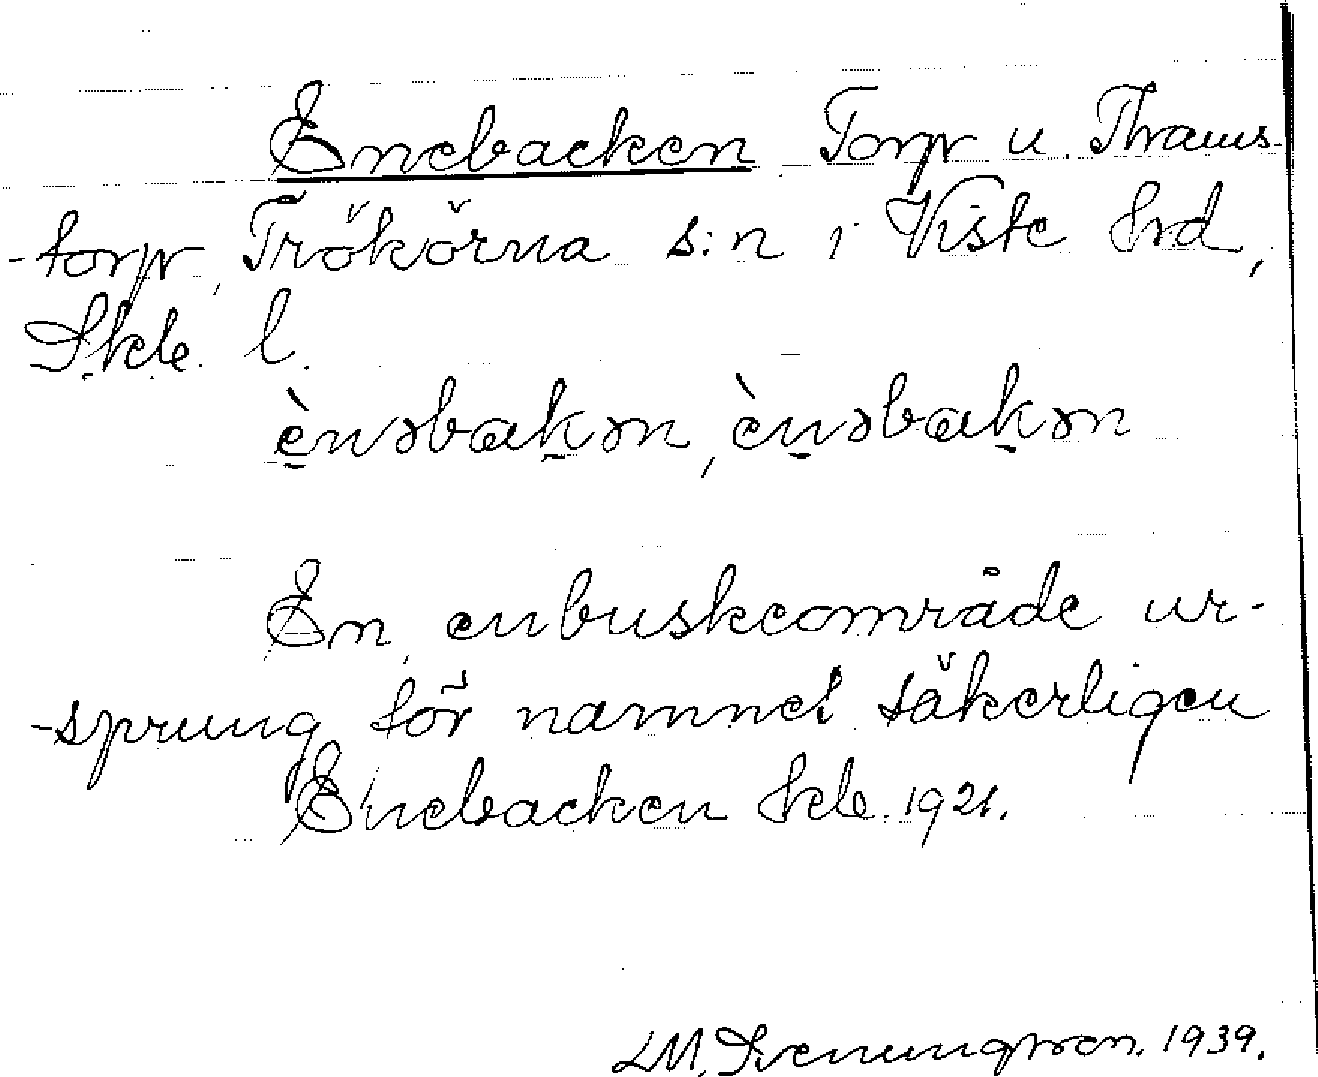 Enebacken Torp u. Thraws-
-torp, Trökörna s:n i Viste hrd,
Skb. l.
ènəbakən, ènəbakən
En enbuskeområde ur-
-sprung för namnet säkerligen
Enebacken Skb. 1921.
LM. Svenungsson. 1939.